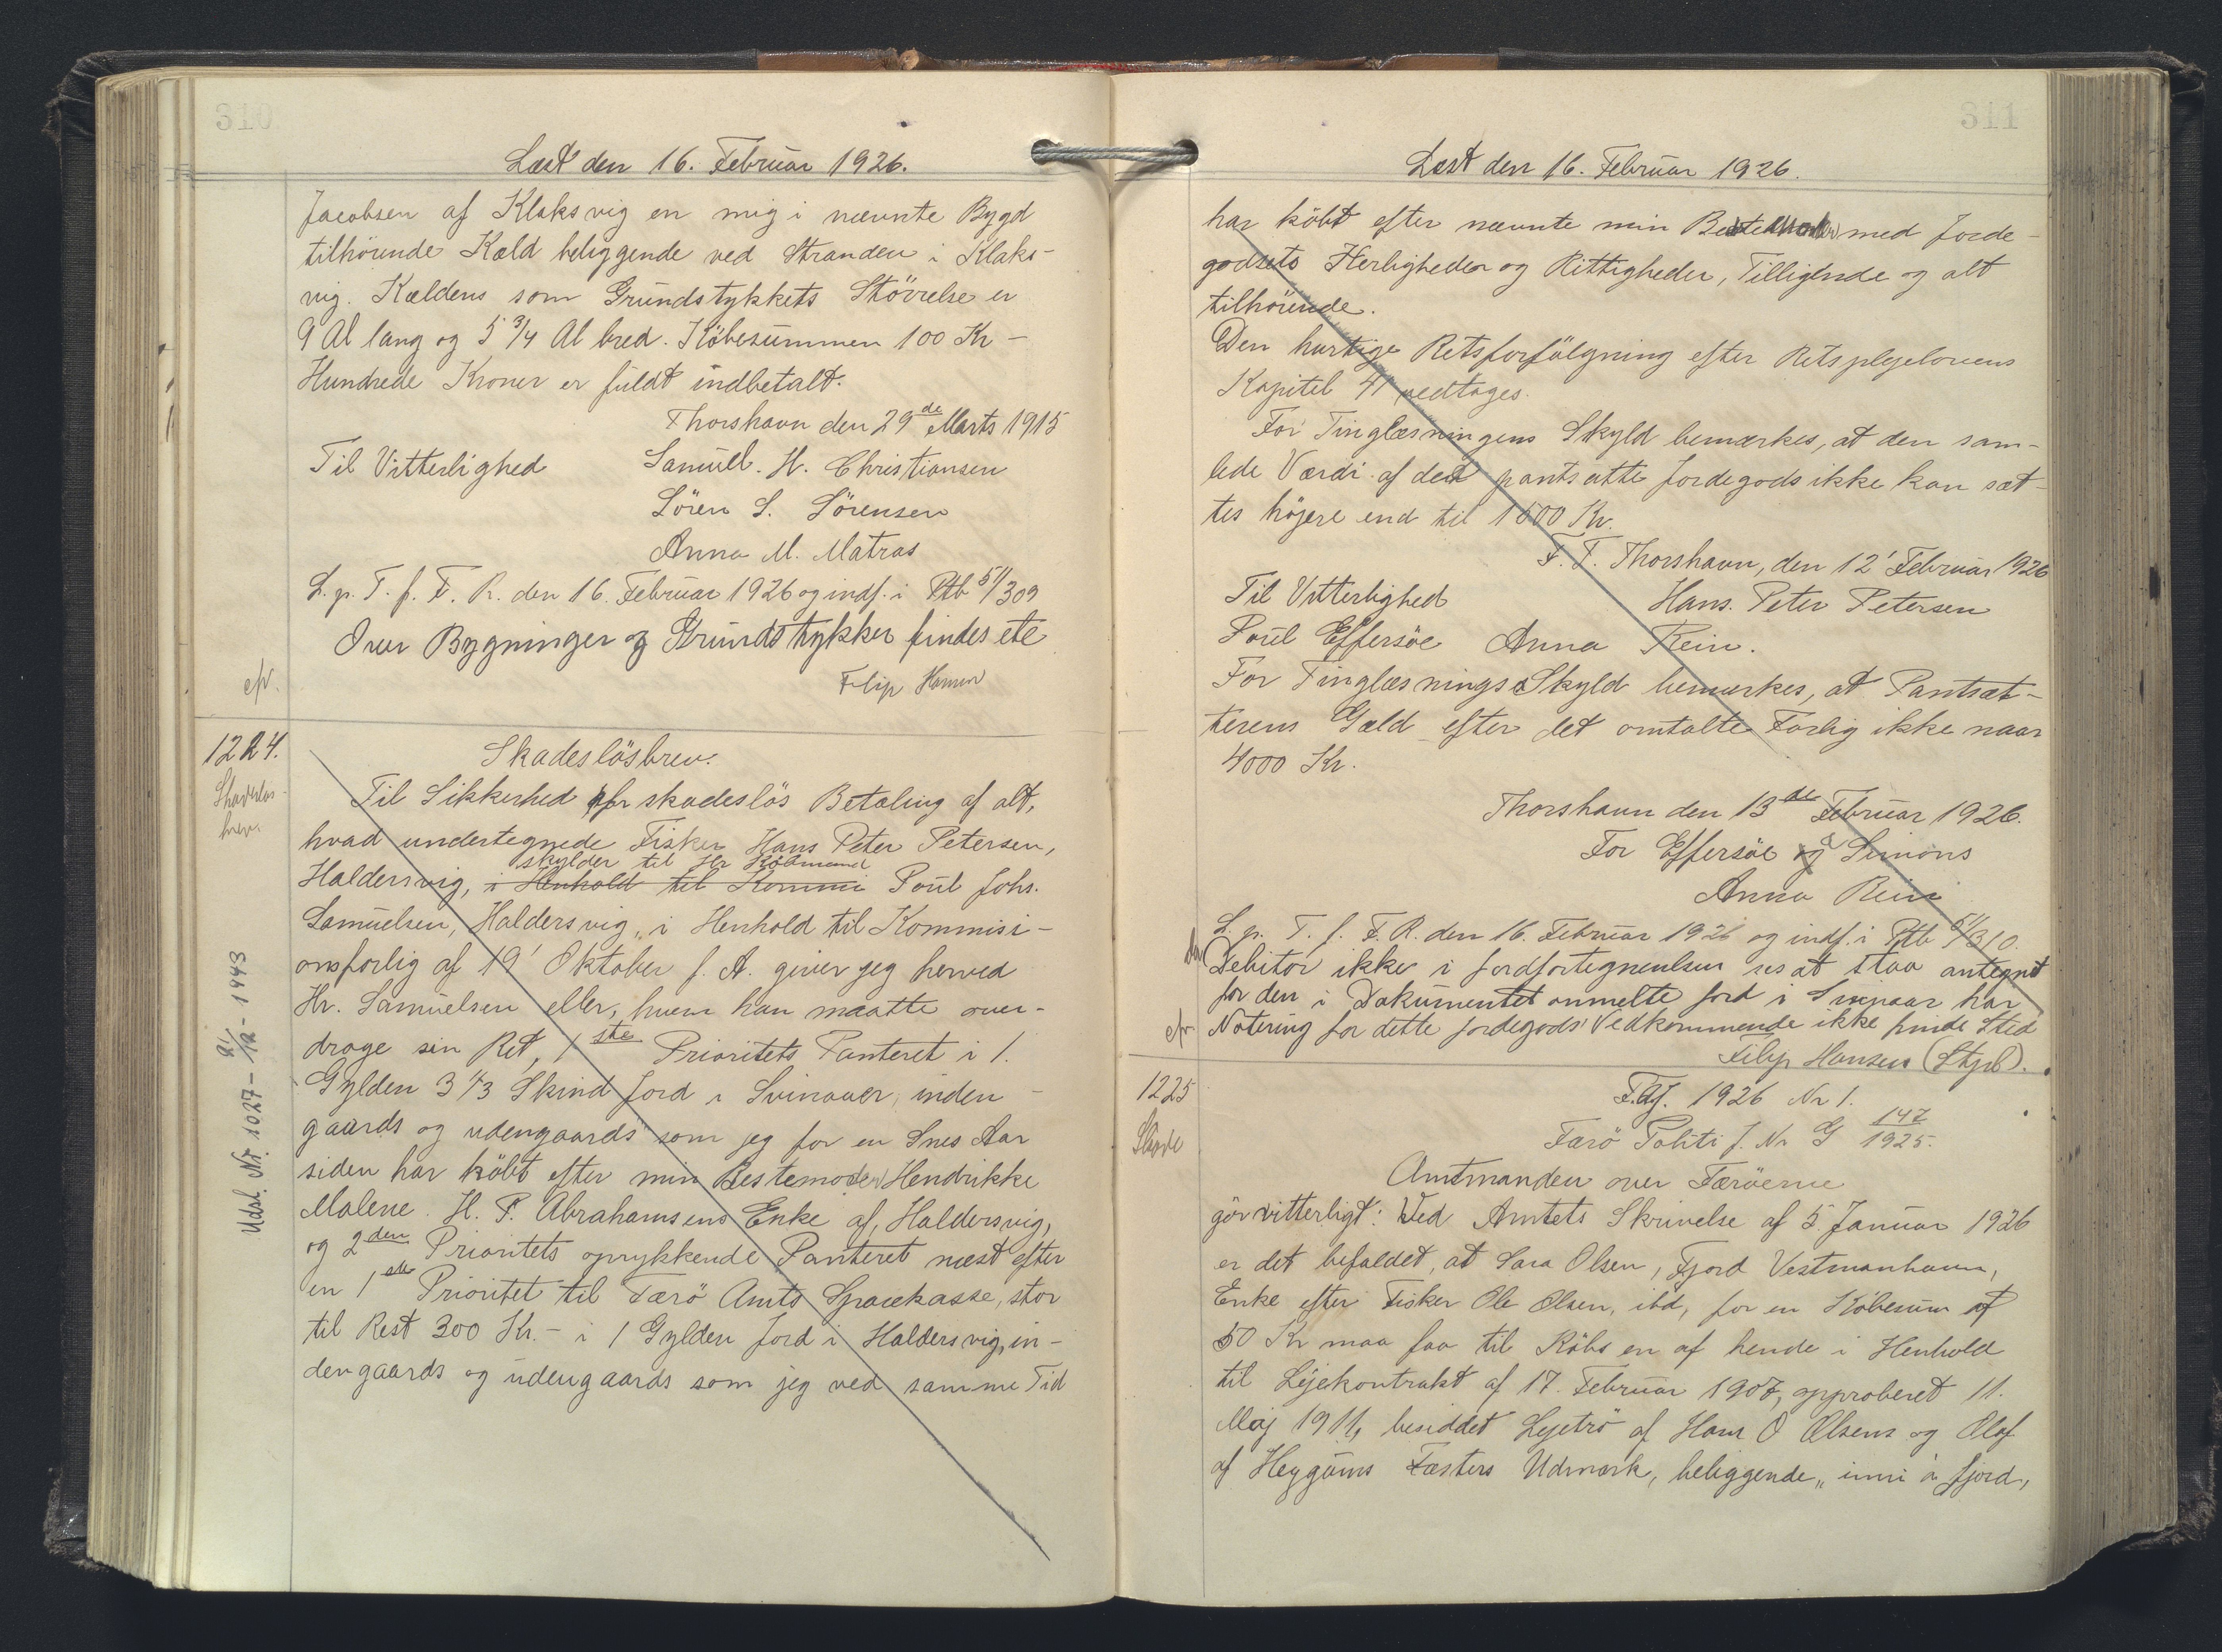 310
Læst den 16. Februar 1926.
Jacobsen af Klaksvig en mig i nævnte Bygd
tilhörende Kæld beliggende ved Stranden i Klaks-
vig. Kældens som Grundstykkets Störrelse er
9 Al lang og 5 3/4 Al bred. Köbesummen 100 Kr -
Hundrede Kroner er fuldt indbetalt.
Thorshavn den 29de Marts 1915
Til Vitterlighed Samuel. H. Christiansen
Sören S. Sörensen
Anna M. Matras
L. p. T. f. F. R. den 16. Februar 1926 og indf. i Ptb 51/309
Over Bygninger og Grundstykker findes ete
Filip Hansen
cfr.
1224.
Skadeslös-
brev.
Skadeslösbrev.
Til Sikkerhed for skadeslös Betaling af alt,
hvad undertegnede Fisker Hans Peter Petersen,
skylder til Hr Köbmand
Haldersvig, i Henhold til Kommi Poul Johs.
Samuelsen, Haldersvig, i Henhold til Kommisi-
onsforlig af 19' Oktober f. A. giver jeg herved
Hr. Samuelsen eller, hvem han maatte over-
drage sin Ret, 1ste Prioritets Panteret i 1.
Gylden 3 1/3 Skind Jord i Svinaaer, inden-
gaards og udengaards som jeg for en Snes Aar
siden har köbt efter min Bestemoder Hendrikke
Malene. H. P. Abrahamsens Enke af, Haldersvig,
og 2den Prioritets oprykkende Panteret næst efter
en 1ste Prioritet til Færö Amts Sparekasse, stor
til Rest 300 Kr.- i 1 Gylden Jord i Haldersvig, in-
dengaards og udengaards som jeg ved samme Tid
Udsl. Nr. 1027 - 21/12 - 1943
311
Læst den 16. Februar 1926.
har köbt efter nævnte min Bestemoder med Jorde-
godsets Herligheder og Rittigheder, Tilliglnde og alt
tilhörende.
Den hurtige Retsforfölgning efter Retsplejelovens
Kapitel 41 vedtages.
For Tinglæsningens Skyld bemærkes, at den sam-
lede Værdi af det pantsatte Jordegods ikke kan sæt-
tes höjere end til 1600 Kr.
F. T. Thorshavn, den 12' Februar 1926
Til Vitterlighed Hans. Peter Petersen
Poul Effersöe Anna Rein.
For Tinglæsnings Skyld bemærkes, at Pantsæt-
terens Gæld efter det omtalte Forlig ikke naar
4000 Kr.
Thorshavn den 13de Februar 1926.
For Effersöe og Simons
Anna Rein
L. p. T. f. F. R. den 16. Februar 1926 og indf. i Ptb 51/310.
Da Debitor ikke i Jordfortegnenlsen ses at staa antegnet
for den i Dokumentet anmelte Jord i Svinaar har
cfr Notering for dette Jordegods Vedkommende ikke finde Sted
Filip Hansen (Stpl).
1225
Skøde
F.Aj. 1926 Nr 1.
Færö Politi J. Nr G 147/1925.
Amtmanden over Færöerne
gör vitterligt: Ved Amtets Skrivelse af 5. Januar 1926
er det befaldet, at Sara Olsen, Fjord Vestmanhavn,
Enke efter Fisker Ole Olsen, ibd, for en Köbesum af
50 Kr maa faa til Köbs en af hende i Henhold
til Lejekontrakt af 17. Februar 1907, approberet 11.
Maj 1911, besiddet Lejetrö af Hans O Olsens og Olaf
af Heygüms Fæsters Udmark, beliggende „inni á fjord,